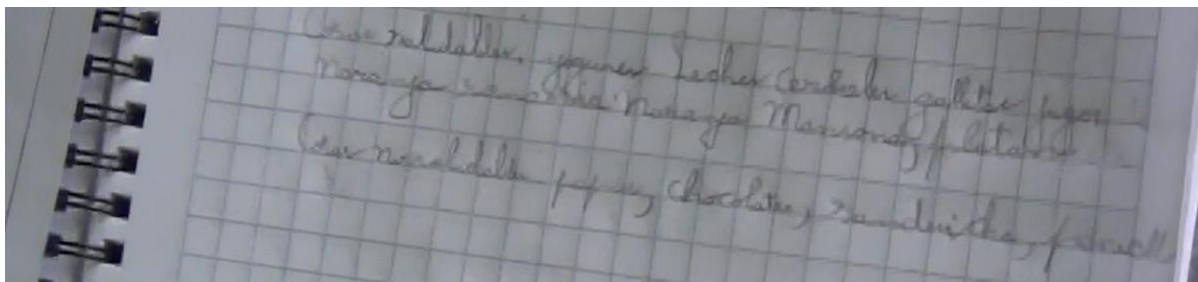 Cosas saludables, yogures leches cereales galletas jugos
naranja zanahoria naranja Manzanas, platanos
Cosas no saludables papas, chocolates, sandwiches,